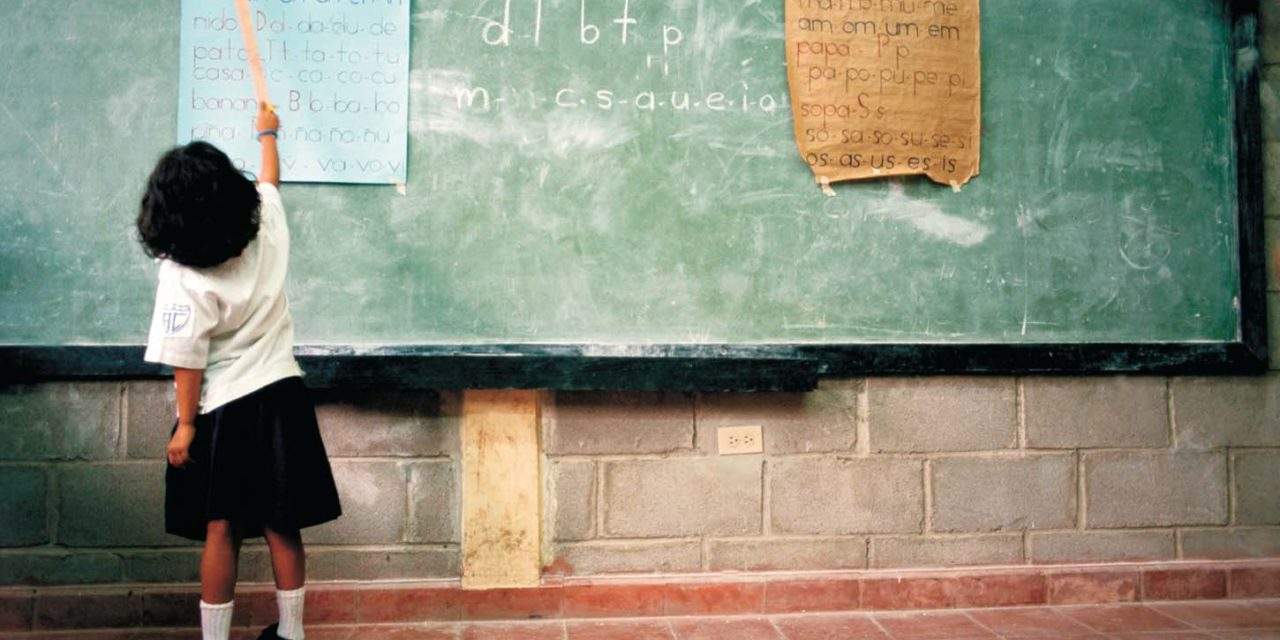 nido D d-da-du-de
pato T t-ta-to-tu
casa c-ca-co-cu
banano B b-ba-bo
piña ña-ño-ñu
v-va-vo-v
d l b t p
n
m- c.s-a.u.e.i.o
ma-mo-mu-me
am om um em
papá P p
pa-po-pu-pe-pi
sopa-S s
so-sa-so-su-se-si
os-as-us-es-is